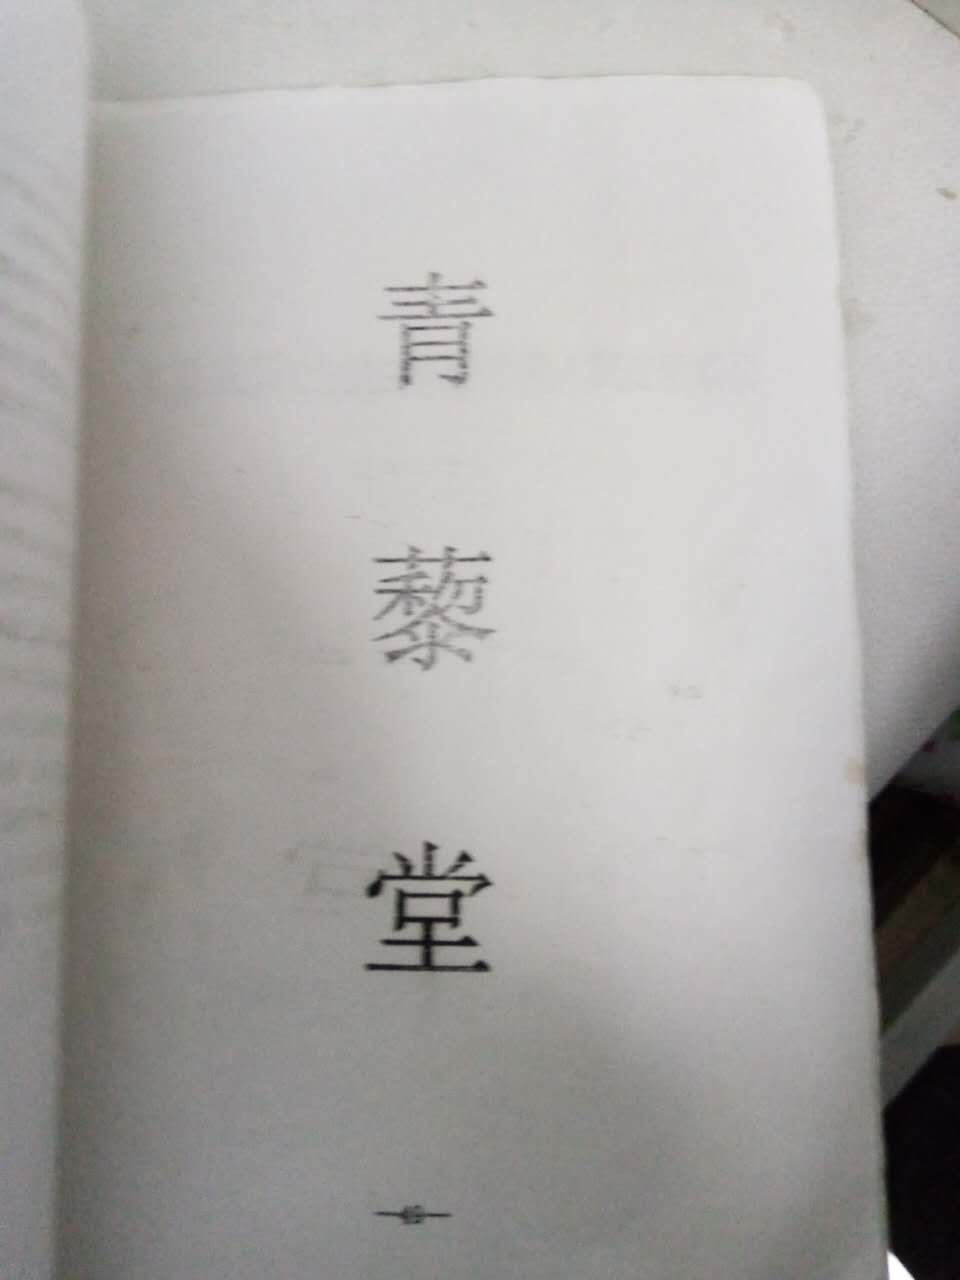 青藜堂